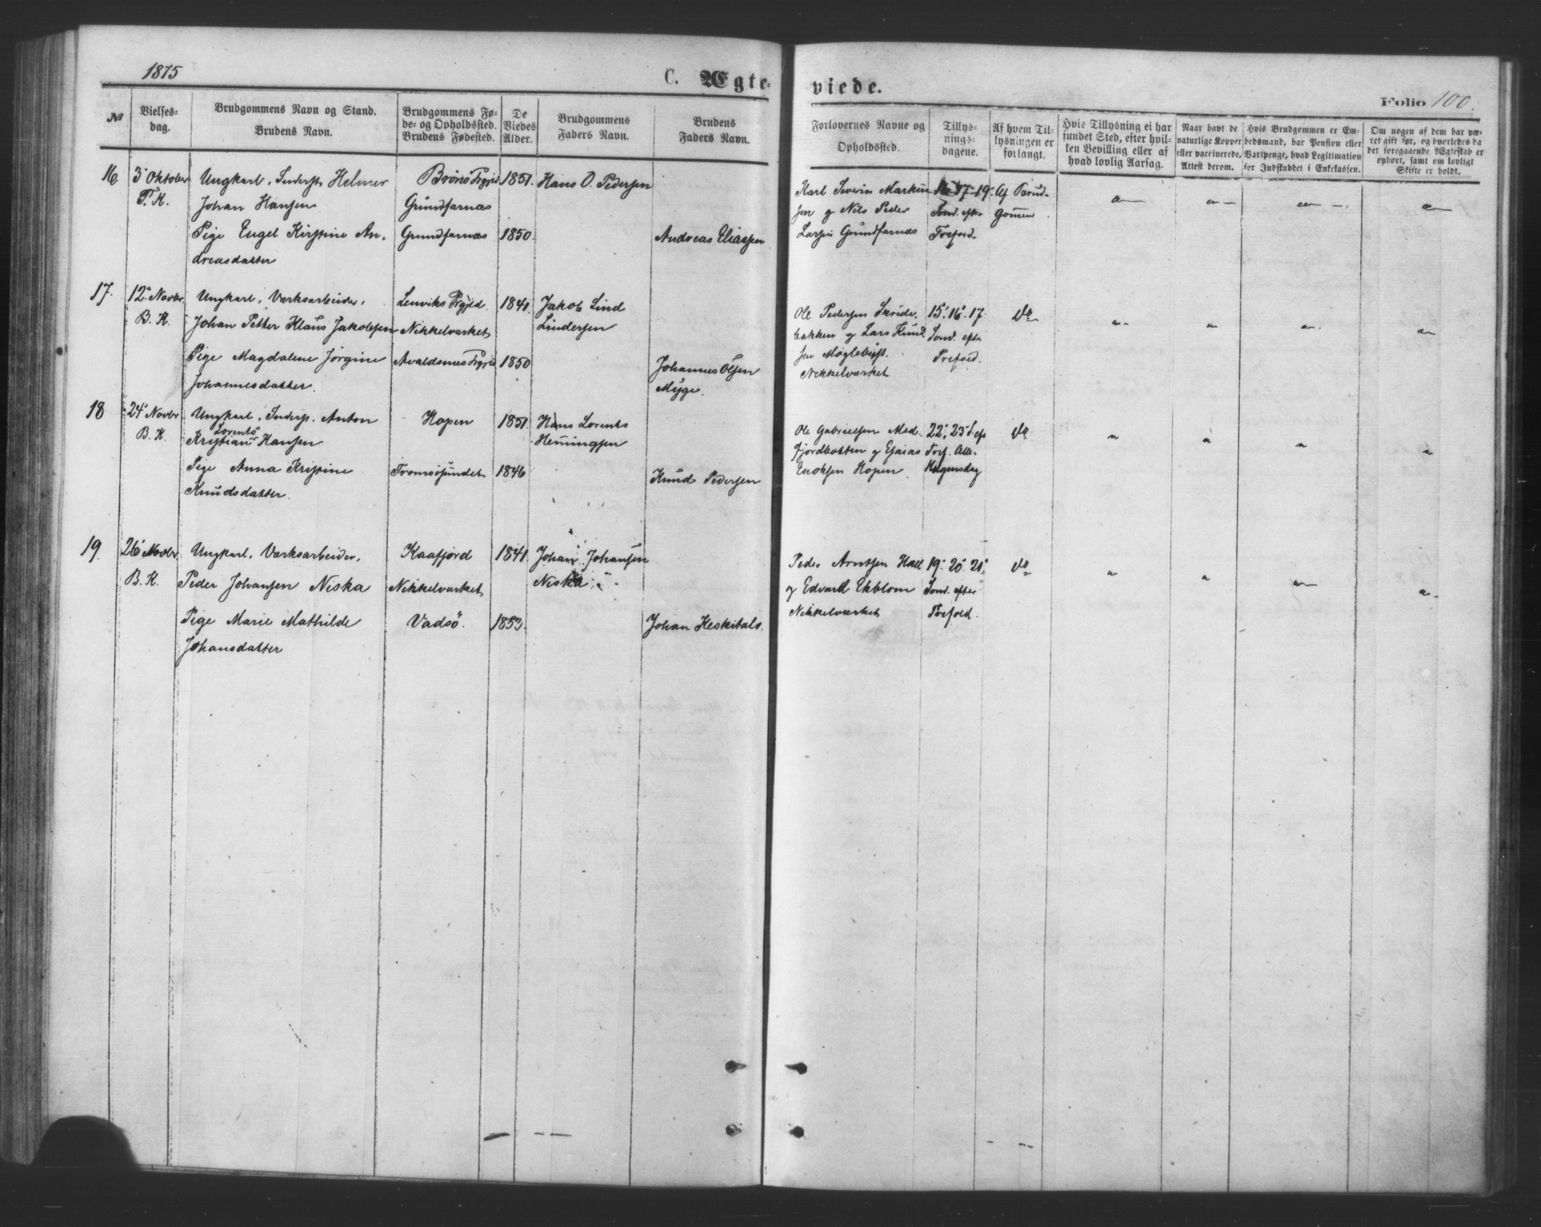 1875
C. Ægte-
viede.
Folio 100.
№
Vielses-
dag.
Brudgommens Navn og Stand.
Brudens Navn.
Brudgommens Fø-
de- og Opholdssted.
Brudens Fødested.
De
Viedes
Alder.
Brudgommens
Faders Navn.
Brudens
Faders Navn.
Forlovernes Navne og
Opholdssted.
Tillys-
nings-
dagene.
Af hvem Til-
lysningen er
forlangt.
Hvis Tillysning ei har
fundet Sted, efter hvil-
ken Bevilling eller af
hvad lovlig Aarsag.
Naar havt de
naturlige Kopper
eller vaccinerede.
Attest derom.
Hvis Brudgommen er Em-
bedsmand, har Pension eller
Vartpenge, hvad Legitimation
for Indskudet i Enkekassen.
Om nogen af dem har væ-
ret gift før, og hvorledes da
det foregaaende Ægteskab er
ophørt, samt om lovligt
Skifte er holdt.
16
3' Oktober
T. K.
Ungkarl, Inderst Helmer
Johan Hansen
Pige Engel Kirstine An-
dreasdatter
Brönö Prgjld
Grundfarnæs
Grundfarnæs
1851
1850
Hans O. Pedersen
Andreas Eliassen
Karl Severin Markus-
sen og Nils Peder
Larsen Grundfarnæs
17- 19-
Sønd. efter
Trefold.
Af Brud-
gommen
17.
12' Novbr
B. K.
Ungkarl, Værksarbeider,
Johan Petter Klaus Jakobsen
Pige Magdalene Jørgine
Johannesdatter
Lenviks Prgjld.
Nikkelværket
Avaldsnes Prgjld
1841
1850
Jakob Lind
Lindersen
Johannes Olsen
Myge
Ole Pedersen Skride-
bakken og Lars Knud-
sen Møglebust.
Nikkelværket
15' 16' 17
Sønd. efter
Trefold.
Do
18
24' Novbr
B. K.
Ungkarl, Inderst, Anton
Lorents
Kristian Hansen
Pige Anna Kristine
Knudsdatter
Kopen
Tromsösundet
1851
1846
Hans Lorents
Hemmingsen
Knud Pedersen
Ole Gabrielsen Med-
fjordbotten og Esaias
Enoksen Kopen
22', 23' S. eft
Tref. Alle-
Helgensdag
Do
19
26' Novbr
B. K.
Ungkarl, Værksarbeider,
Peder Johansen Niska
Pige Marie Mathilde
Johansdatter
Kaafjord
Nikkelværket
Vadsö
1841
1853.
Johan Johansen
Niska
Johan Keskitalo.
Peder Arntsen
og Edvard Ekblom
Nikkelværket
19' 20' 21'
Sønd. efter
Trefold.
Do